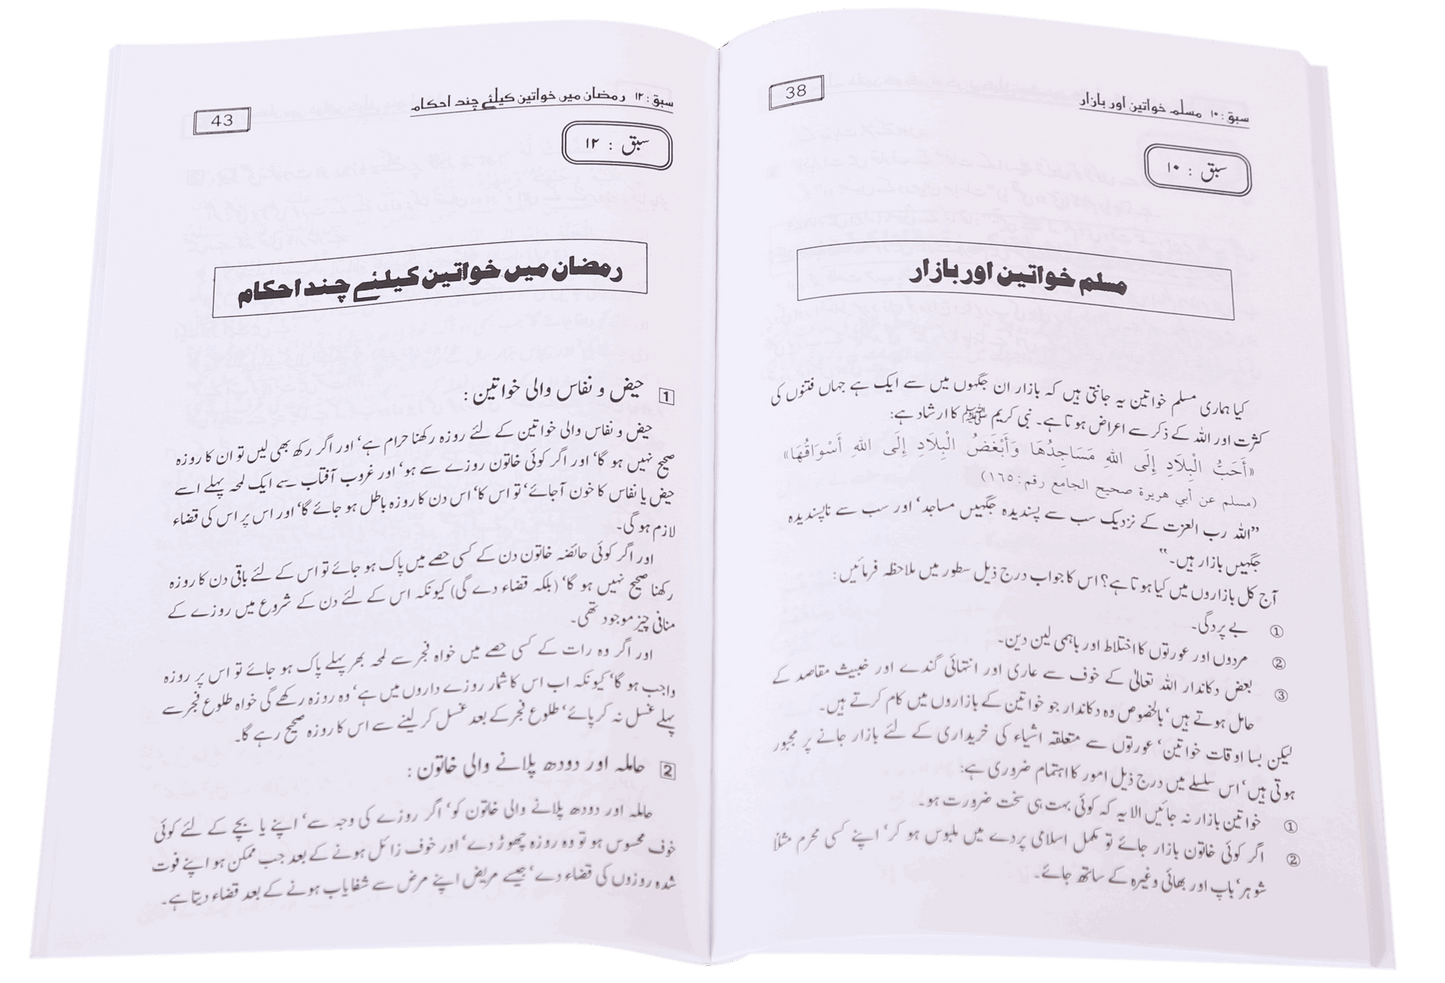 سبق : ۱۰ مسلم خواتین اور بازار
38
سبق : ۱۰
مسلم خواتین اور بازار
کیا ہماری مسلم خواتین یہ جانتی ہیں کہ بازار ان جگہوں میں سے ایک ہے جہاں فتنوں کی
کثرت اور اللہ کے ذکر سے اعراض ہوتا ہے۔ نبی کریم ﷺ کا ارشاد ہے:
«أَحَبُّ الْبِلَادِ إِلَى اللهِ مَسَاجِدُهَا وَأَبْغَضُ الْبِلَادِ إِلَى اللهِ أَسْوَاقُهَا»
(مسلم عن أبي هريرة صحيح الجامع رقم: ١٦٥)
”اللہ رب العزت کے نزدیک سب سے پسندیدہ جگہیں مساجد‘ اور سب سے ناپسندیدہ
جگہیں بازار ہیں۔“
آج کل بازاروں میں کیا ہوتا ہے؟ اس کا جواب درج ذیل سطور میں ملاحظہ فرمائیں:
① بے پردگی۔
② مردوں اور عورتوں کا اختلاط اور باہمی لین دین۔
③ بعض دکاندار اللہ تعالیٰ کے خوف سے عاری اور انتہائی گندے اور خبیث مقاصد کے
حامل ہوتے ہیں‘ بالخصوص وہ دکاندار جو خواتین کے بازاروں میں کام کرتے ہیں۔
لیکن بسا اوقات خواتین‘ عورتوں سے متعلقہ اشیاء کی خریداری کے لئے بازار جانے پر مجبور
ہوتی ہیں‘ اس سلسلے میں درج ذیل امور کا اہتمام ضروری ہے:
① خواتین بازار نہ جائیں الا یہ کہ کوئی بہت ہی سخت ضرورت ہو۔
② اگر کوئی خاتون بازار جائے تو مکمل اسلامی پردے میں ملبوس ہو کر‘ اپنے کسی محرم مثلاً
شوہر‘ باپ اور بھائی وغیرہ کے ساتھ جائے۔
سبق : ۱۲ رمضان میں خواتین کیلئے چند احکام
43
سبق : ۱۲
رمضان میں خواتین کیلئے چند احکام
1 حیض و نفاس والی خواتین :
حیض و نفاس والی خواتین کے لئے روزہ رکھنا حرام ہے‘ اور اگر رکھ بھی لیں تو ان کا روزہ
صحیح نہیں ہو گا‘ اور اگر کوئی خاتون روزے سے ہو‘ اور غروب آفتاب سے ایک لمحہ پہلے اسے
حیض یا نفاس کا خون آجائے‘ تو اس کا‘ اس دن کا روزہ باطل ہو جائے گا‘ اور اس پر اس کی قضاء
لازم ہو گی۔
اور اگر کوئی حائضہ خاتون دن کے کسی حصے میں پاک ہو جائے تو اس کے لئے باقی دن کا روزہ
رکھنا صحیح نہیں ہو گا‘ (بلکہ قضاء دے گی) کیونکہ اس کے لئے دن کے شروع میں روزے کے
منافی چیز موجود تھی۔
اور اگر وہ رات کے کسی حصے میں خواہ فجر سے لمحہ بھر پہلے پاک ہو جائے تو اس پر روزہ
واجب ہو گا‘ کیونکہ اب اس کا شمار روزے داروں میں ہے‘ وہ روزہ رکھے گی خواہ طلوع فجر سے
پہلے غسل نہ کر پائے‘ طلوع فجر کے بعد غسل کر لینے سے اس کا روزہ صحیح رہے گا۔
2 حاملہ اور دودھ پلانے والی خاتون :
حاملہ اور دودھ پلانے والی خاتون کو‘ اگر روزے کی وجہ سے‘ اپنے یا بچے کے لئے کوئی
خوف محسوس ہو تو وہ روزہ چھوڑ دے‘ اور خوف زائل ہونے کے بعد جب ممکن ہو اپنے فوت
شدہ روزوں کی قضاء دے‘ جیسے مریض اپنے مرض سے شفایاب ہونے کے بعد قضاء دیتا ہے۔